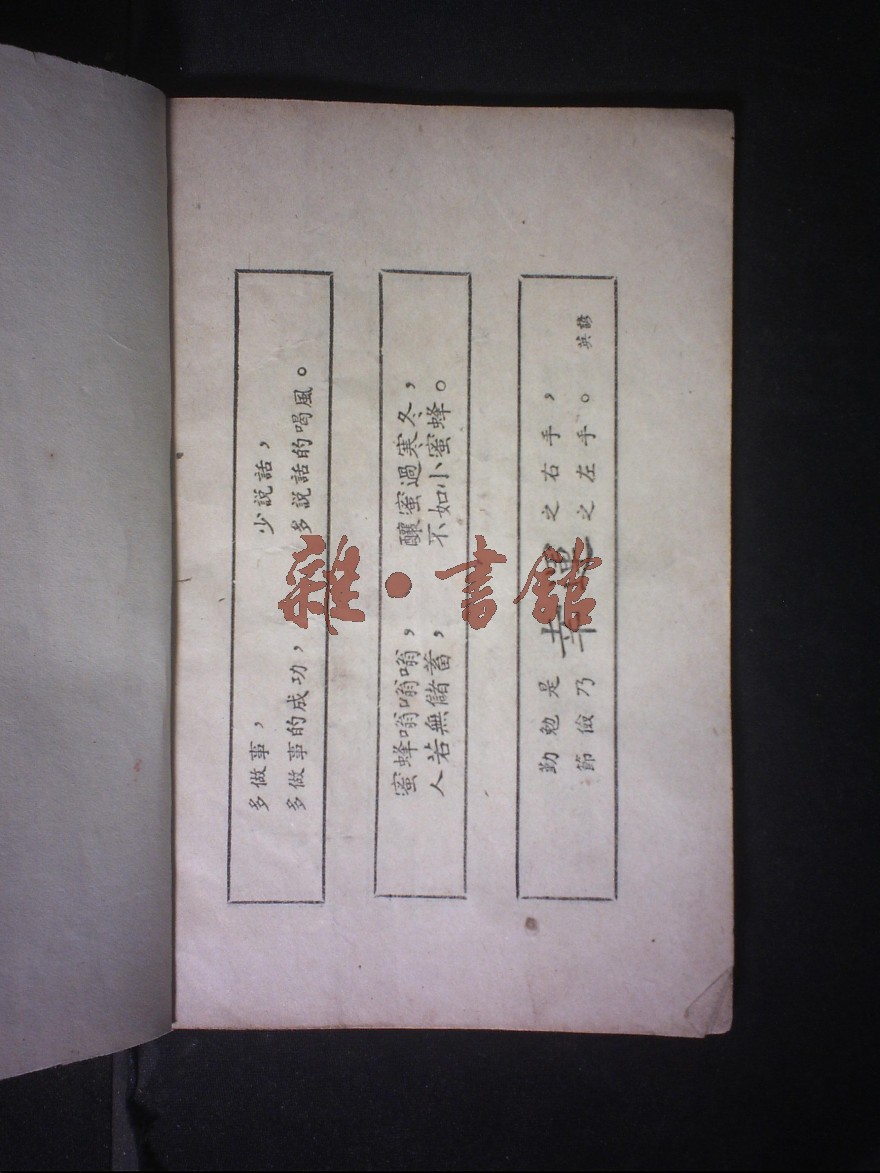 多做事， 少説話，
多做事的成功， 多説話的喝風。
蜜蜂嗡嗡嗡嗡， 釀蜜過寒冬，
人若無儲蓄， 不如小蜜蜂。
勤勉是 之右手，
幸運
節儉乃 之左手。
英諺
雜·書館